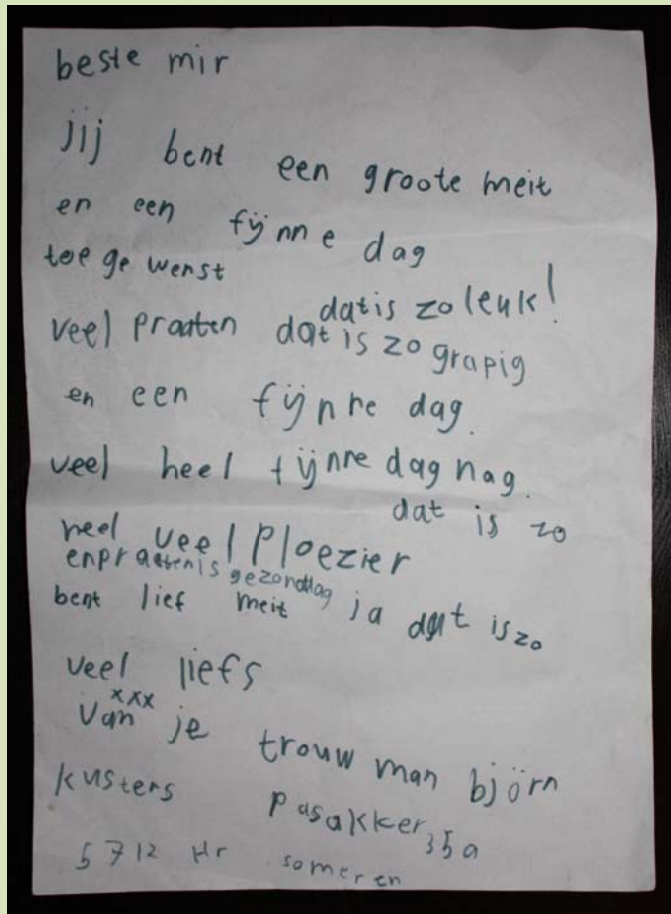 beste mir
jij bent een groote meit
en een fijnne dag
toe ge wenst
datis zo leuk!
veel praaten dat is zo grapig
en een fijnne dag.
veel heel fijnne dag nag.
dat is zo
heel veel Ploezier
enpraatenis gezond
bent lief meit ja dat is zo
veel liefs
xxx
van je trouw man björn
kusters pasakker 35a
5712 Hr someren